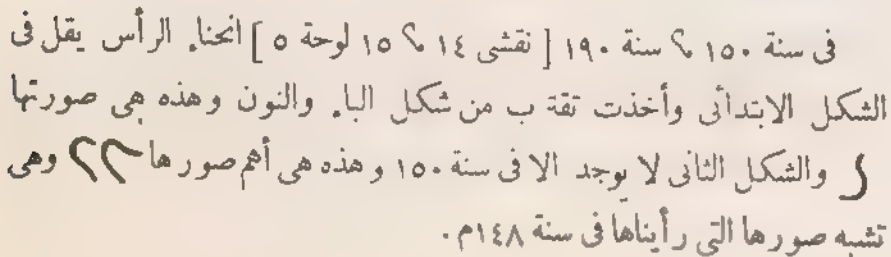 فى سنة ١٥٠ ؟ سنة ١٩٠ [ نقشى ١٤ ؟ ١٥ لوحة ٥ ] انحناء الرأس يقل فى
الشكل الابتدائى وأخذت تقترب من شكل الباء والنون وهذه هى صورتها
والشكل الثانى لا يوجد الا فى سنة ١٥٠ وهذه هى أهم صورها وهى
تشبه صورها التى رأيناها فى سنة ١٤٨م.